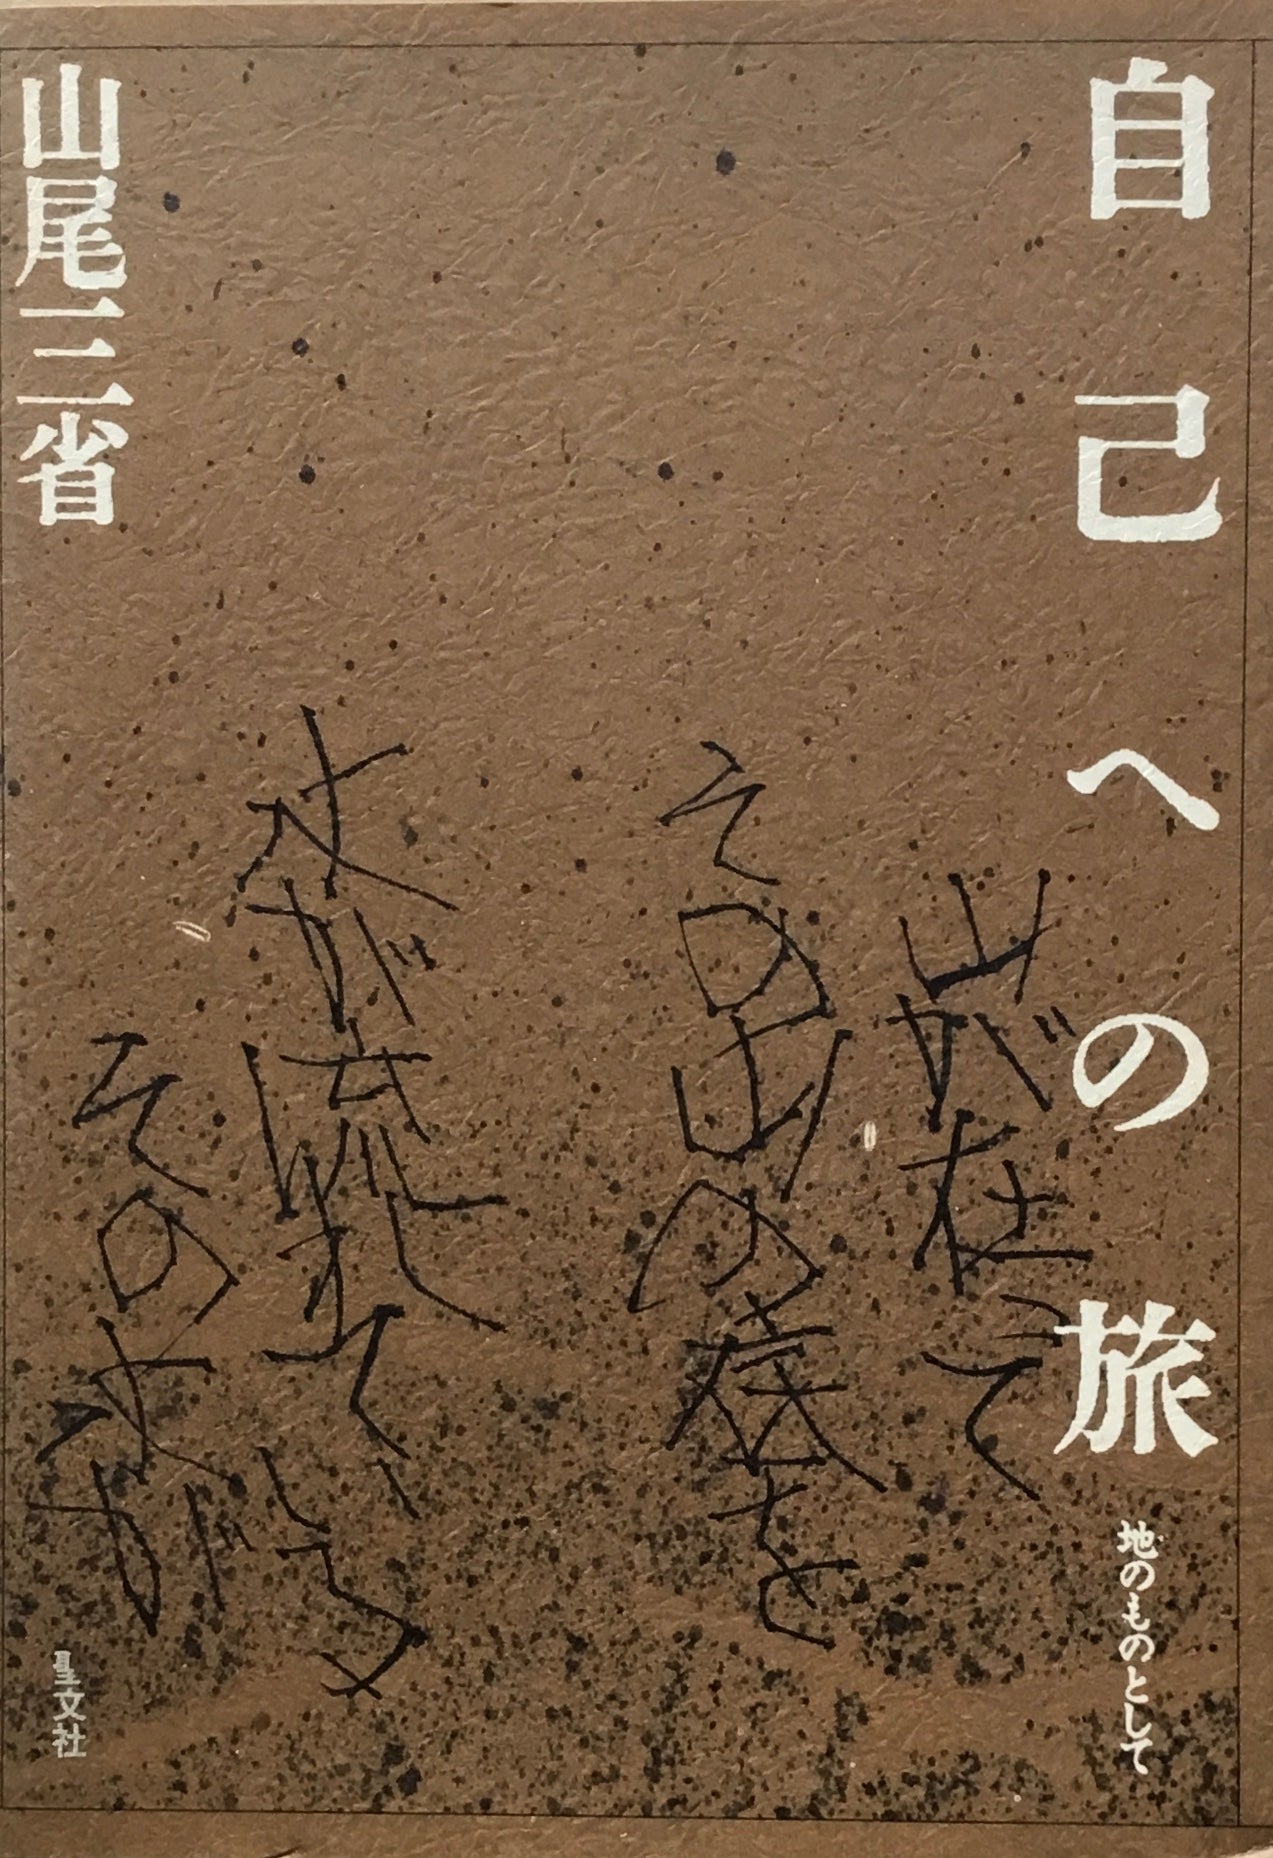 自己への旅
地のものとして
山が在って
その山の底を
水が流れている
その水が
山尾三省
聖文社